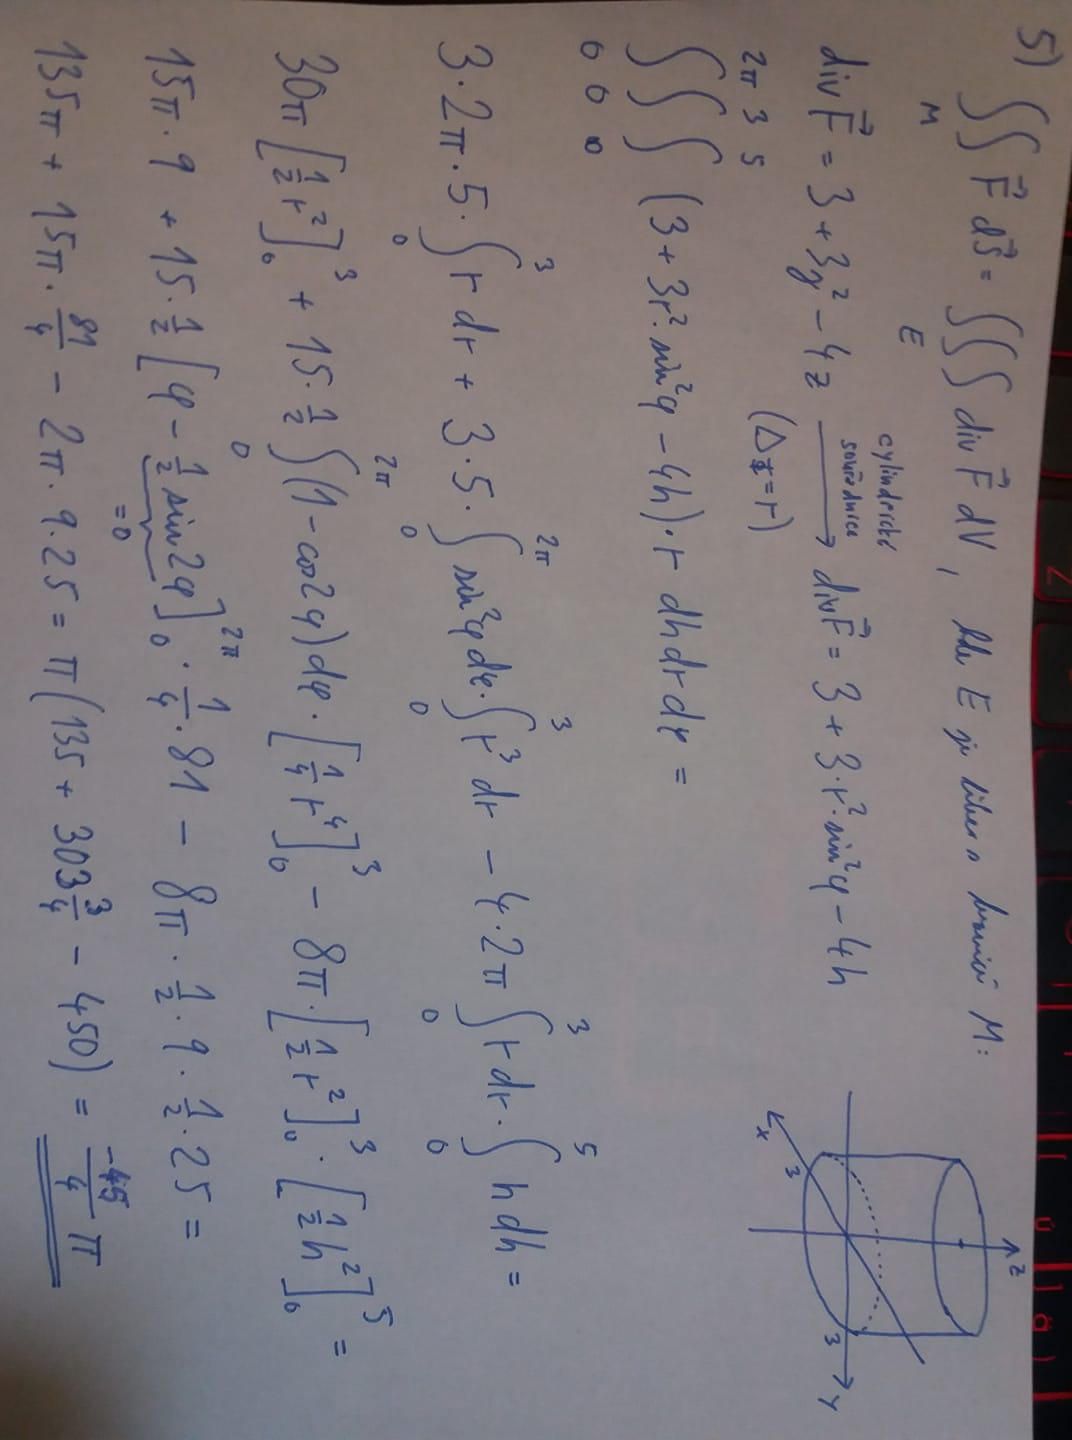 5) ∬_M F⃗ dS⃗ = ∭_E div F⃗ dV, kde E je těleso s hranicí M:
cylindrické
souřadnice
div F⃗ = 3 + 3y² − 4z ⟶ div F⃗ = 3 + 3·r²·sin²φ − 4h
(Δ = r)
∫₀^{2π} ∫₀^3 ∫₀^5 (3 + 3r²·sin²φ − 4h)·r dh dr dφ =
3·2π·5·∫₀^3 r dr + 3·5·∫₀^{2π} sin²φ dφ·∫₀^3 r³ dr − 4·2π ∫₀^3 r dr·∫₀^5 h dh =
30π [½ r²]₀^3 + 15·½ ∫₀^{2π} (1 − cos2φ) dφ·[¼ r⁴]₀^3 − 8π·[½ r²]₀^3·[½ h²]₀^5 =
15π·9 + 15·½ [φ − ½ sin2φ]₀^{2π}·¼·81 − 8π·½·9·½·25 =
=0
135π + 15π·81/4 − 2π·9·25 = π(135 + 303 3/4 − 450) = −45/4 π
z
x
3
3
y